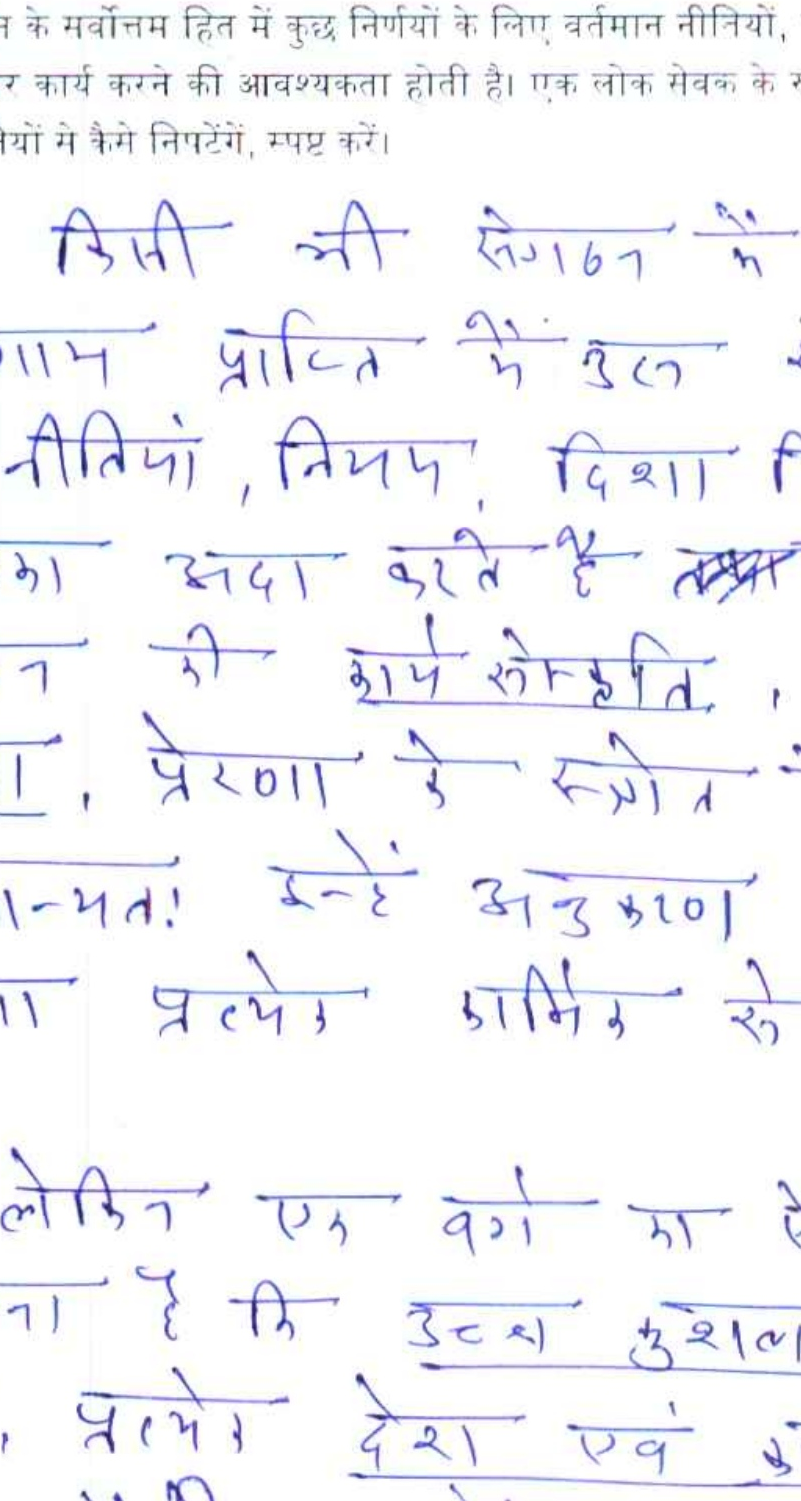 न के सर्वोत्तम हित में कुछ निर्णयों के लिए वर्तमान नीतियों,
र कार्य करने की आवश्यकता होती है। एक लोक सेवक के
नियों से कैसे निपटेंगें, स्पष्ट करें।
किसी भी संगठन में
प्राप्ति में उस
नीतियां, नियम, दिशा
का अदा करते है
न की कार्य संस्कृति,
, प्रेरणा के स्त्रोत
इन्हें अनुकरण
प्रत्येक कार्मिक से
लेकिन एक वर्ग का
ना है कि उच्च कुशल
, प्रत्येक देश एवं